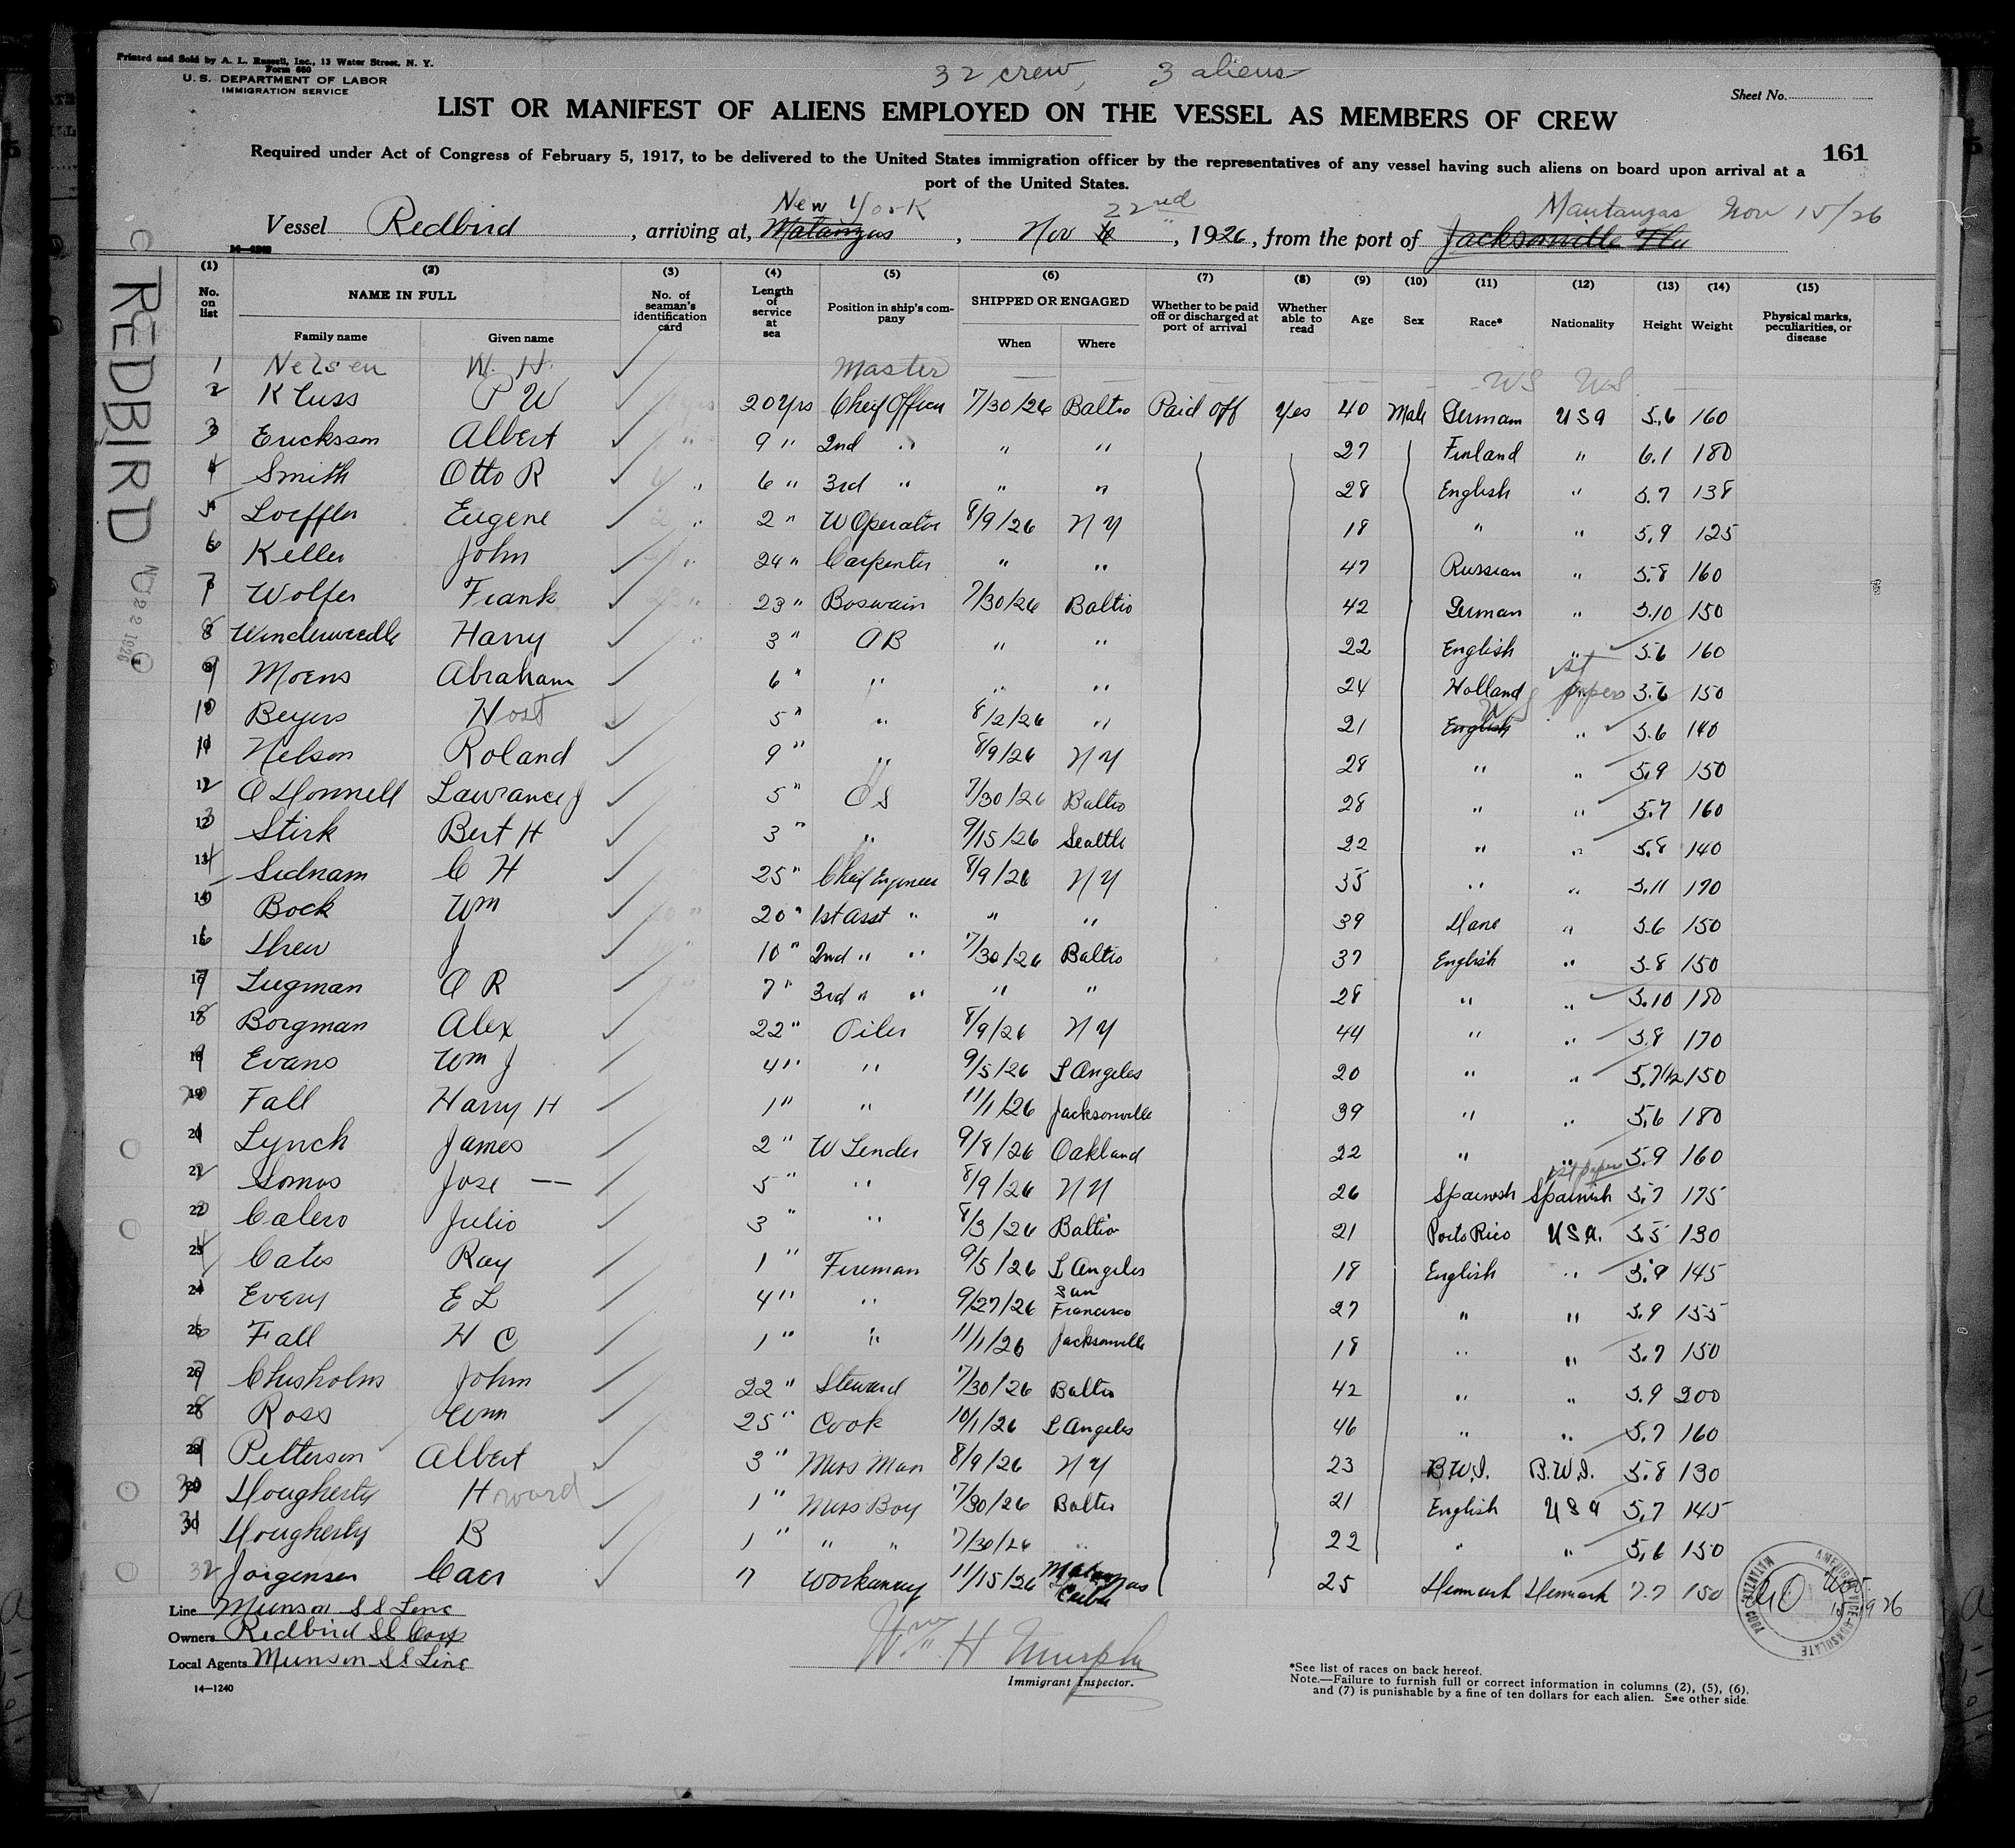 Printed and Sold by A. L. Russell, Inc., 13 Water Street, N. Y.
Form 680
U. S. DEPARTMENT OF LABOR
IMMIGRATION SERVICE
32 crew, 3 aliens
Sheet No.
LIST OR MANIFEST OF ALIENS EMPLOYED ON THE VESSEL AS MEMBERS OF CREW
161
Required under Act of Congress of February 5, 1917, to be delivered to the United States immigration officer by the representatives of any vessel having such aliens on board upon arrival at a
port of the United States.
New York 22nd Mantanzas Nov 15/26
Vessel Redbird, arriving at, Matanzas, Nov, 1926, from the port of Jacksonville Fla
14—1240
REDBIRD
NOV 22 1926
(1) (2) (3) (4) (5) (6) (7) (8) (9) (10) (11) (12) (13) (14) (15)
No. on list
NAME IN FULL
Family name
Given name
No. of seaman's identification card
Length of service at sea
Position in ship's company
SHIPPED OR ENGAGED
When
Where
Whether to be paid off or discharged at port of arrival
Whether able to read
Age
Sex
Race*
Nationality
Height
Weight
Physical marks, peculiarities, or disease
1 Nelsen W. H. Master — — — — — — US US —
2 Kluss P W 20 Yrs Cheif Officer 7/30/26 Baltio Paid off Yes 40 Male German USA 5.6 160
3 Ericksson Albert 9 " 2nd " " " 27 Finland " 6.1 180
4 Smith Otto R 6 " 3rd " " " 28 English " 5.7 138
5 Loeffler Eugene 2 " W Operator 8/9/26 NY 18 " " 5.9 125
6 Keller John 24 " Carpenter " " 47 Russian " 5.8 160
7 Wolfer Frank 23 " Boswain 7/30/26 Baltio 42 German " 5.10 150
8 Winderweedle Harry 3 " AB " " 22 English " 5.6 160
9 Moens Abraham 6 " " " " 24 Holland 1st papers 5.6 150
10 Beyers Host 5 " " 8/2/26 " 21 English " 5.6 140
11 Nelson Roland 9 " " 8/9/26 NY 28 " " 5.9 150
12 O Donnell Lawrance J 5 " OS 7/30/26 Baltio 28 " " 5.7 160
13 Stirk Bert H 3 " " 9/15/26 Seattle 22 " " 5.8 140
14 Sidnam C H 25 " Cheif Engineer 8/9/26 NY 35 " " 5.11 170
Bock Wm 20 " 1st Asst " " " 39 Dane " 5.6 150
16 Shew J 10 " 2nd " " 7/30/26 Baltio 37 English " 5.8 150
17 Lugman O R 7 " 3rd " " " " 28 " " 5.10 180
18 Borgman Alex 22 " Oiler 8/9/26 NY 44 " " 5.8 170
19 Evans Wm J 4 " " 9/5/26 L Angeles 20 " " 5.7 1/2 150
20 Fall Harry H 1 " " 11/1/26 Jacksonville 39 " " 5.6 180
21 Lynch James 2 " W Tender 9/8/26 Oakland 22 " " 5.9 160
22 Somos Jose — 5 " " 8/9/26 NY 26 Spainish 1st paper Spainish 5.7 175
23 Calero Julio 3 " " 8/3/26 Baltio 21 Porto Rico USA. 5.5 130
24 Cates Ray 1 " Fireman 9/5/26 L Angeles 18 English " 5.9 145
Every E L 4 " " 9/27/26 San Francisco 27 " " 5.9 155
26 Fall H C 1 " " 11/1/26 Jacksonville 18 " " 5.7 150
27 Chisholms John 22 " Steward 7/30/26 Baltio 42 " " 5.9 200
28 Ross Wm 25 " Cook 10/1/26 L Angeles 46 " " 5.7 160
29 Petterson Albert 3 " Mess Man 8/9/26 NY 23 B.W.I. B.W.I. 5.8 130
30 Dougherty Howard 1 " Mess Boy 7/30/26 Baltio 21 English USA 5.7 145
31 Dougherty B 1 " " " 7/30/26 " 22 " " 5.6 150
32 Jorgensen Carr 7 Workaway 11/15/26 Matanzas Cuba 25 Denmark Denmark 7.7 150
Line Munson SS Line
Owners Redbird SS Corp
Local Agents Munson SS Line
14—1240
Wm H Murphy
Immigrant Inspector.
*See list of races on back hereof.
Note.—Failure to furnish full or correct information in columns (2), (5), (6),
and (7) is punishable by a fine of ten dollars for each alien. See other side.
AMERICAN CONSULATE MATANZAS CUBA
Nov 15 1926